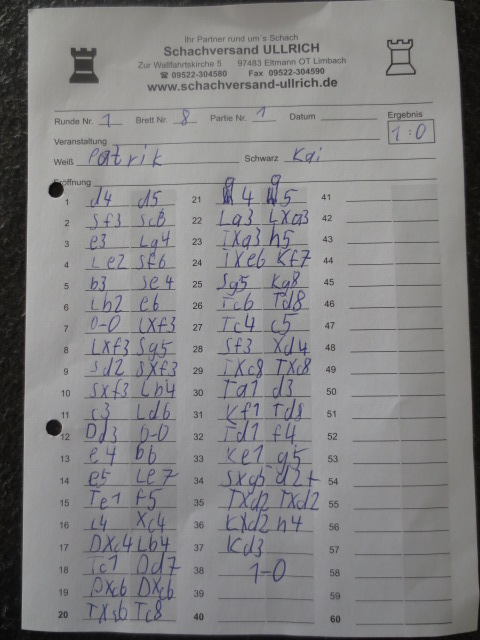 Ihr Partner rund um's Schach
Schachversand ULLRICH
Zur Wallfahrtskirche 5 97483 Eltmann OT Limbach
☎ 09522-304580 Fax 09522-304590
www.schachversand-ullrich.de
Runde Nr. 1 Brett Nr. 8 Partie Nr. 1 Datum Ergebnis
1:0
Veranstaltung
Weiß Patrik Schwarz Kai
Eröffnung
1 d4 d5
2 Sf3 Sc6
3 e3 Lg4
4 Le2 Sf6
5 b3 Se4
6 Lb2 e6
7 0-0 LXf3
8 LXf3 Sg5
9 Sd2 SXf3
10 SXf3 Lb4
11 c3 Ld6
12 Dd3 0-0
13 e4 b6
14 e5 Le7
15 Te1 f5
16 c4 Xc4
17 DXc4 Lb4
18 Tc1 Dd7
19 DXc6 DXc6
20 TXc6 Tc8
21 g4 g5
22 La3 LXa3
23 TXa3 h5
24 TXe6 Kf7
25 Sg5 Kg8
26 Tc6 Td8
27 Tc4 c5
28 Sf3 Xd4
29 TXc8 TXc8
30 Ta1 d3
31 Kf1 Td8
32 Td1 f4
33 Ke1 g5
34 SXg5 d2+
35 TXd2 TXd2
36 KXd2 h4
37 Kd3
38 1-0
39
40
41
42
43
44
45
46
47
48
49
50
51
52
53
54
55
56
57
58
59
60